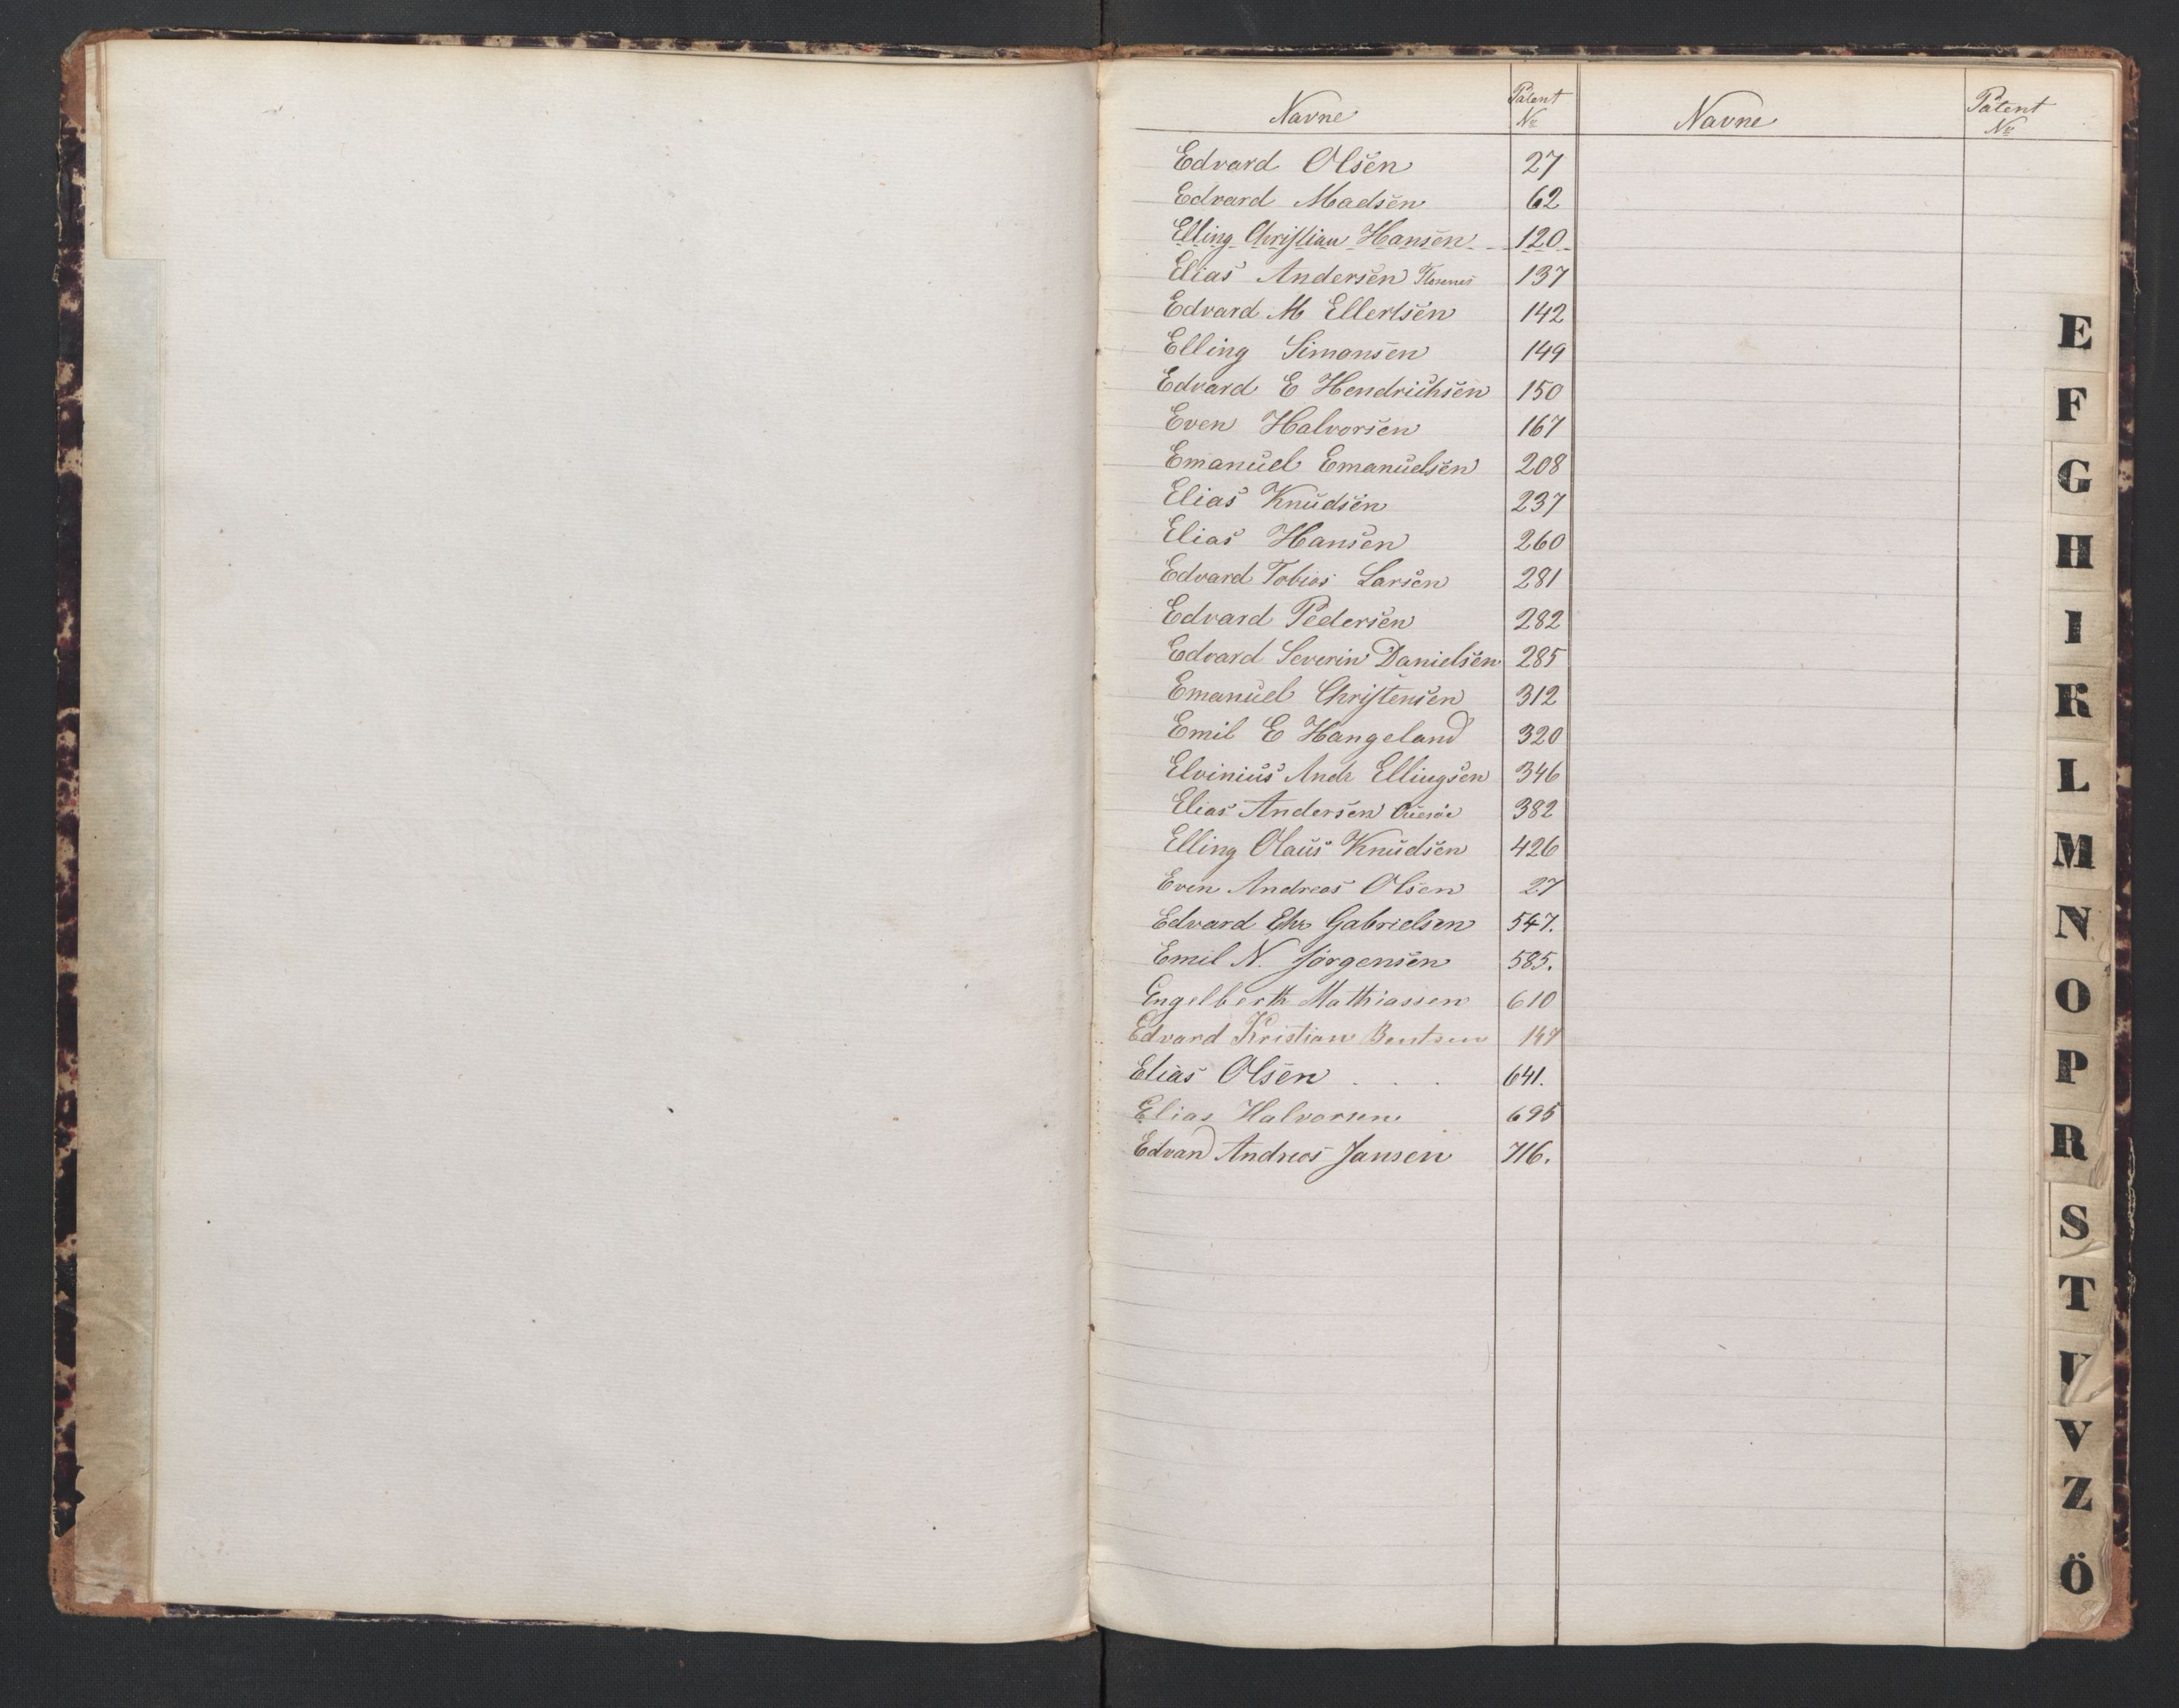 Navne Patent No Navne Patent No
Edvard Olsen 27
Edvard Madsen 62
Elling Christian Hansen 120
Elias Andersen 137
Edvard M Ellertsen 142
Elling Simonsen 149
Edvard E Hendrichsen 150
Even Halvorsen 167
Emanuel Emanuelsen 208
Elias Knudsen 237
Elias Hansen 260
Edvard Tobias Larsen 281
Edvard Pedersen 282
Edvard Severin Danielsen 285
Emanuel Christensen 312
Emil E Hangeland 320
Elvinius Andr Ellingsen 346
Elias Andersen 382
Elling Olaus Knudsen 426
Even Andreas Olsen 27
Edvard Chr Gabrielsen 547.
Emil N. Jörgensen 585.
Engelberth Mathiassen 610
Edvard Kristian Bentsen 147
Elias Olsen . . . 641.
Elias Halvorsen 695
Edvard Andreas Jansen 716.
E
F
G
H
I
K
L
M
N
O
P
R
S
T
U
V
Z
Ö